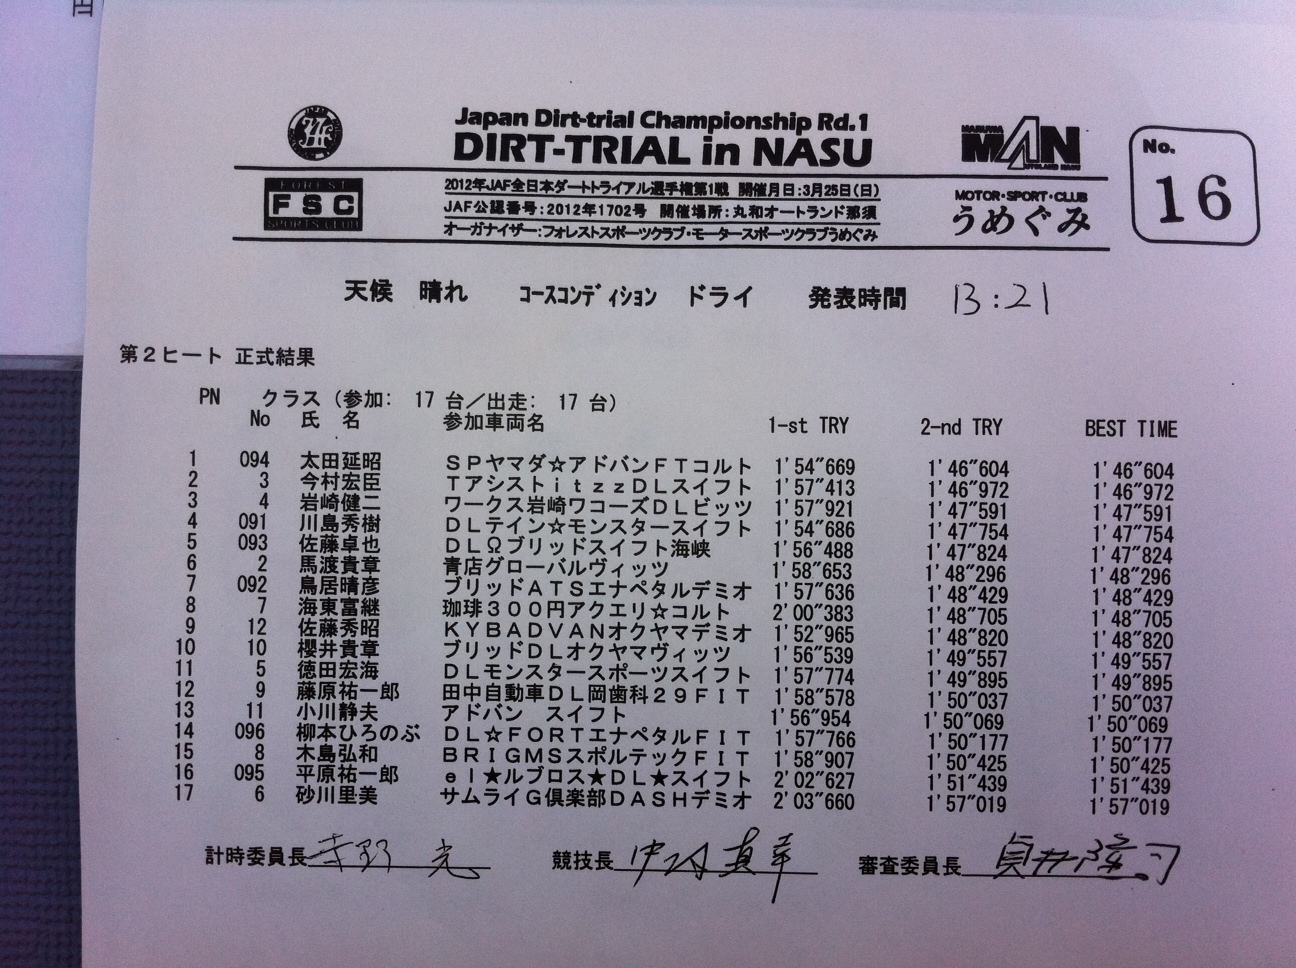 Japan Dirt-trial Championship Rd.1
DIRT-TRIAL in NASU
MAN
No.
16
FOREST
FSC
SPORTS CLUB
2012年JAF全日本ダートトライアル選手権第1戦 開催月日:3月25日(日)
JAF公認番号:2012年1702号 開催場所:丸和オートランド那須
オーガナイザー:フォレストスポーツクラブ・モータースポーツクラブうめぐみ
MOTOR・SPORT・CLUB
うめぐみ
天候 晴れ コースコンディション ドライ 発表時間 13:21
第2ヒート 正式結果
PN クラス (参加: 17 台/出走: 17 台)
No 氏 名 参加車両名 1-st TRY 2-nd TRY BEST TIME
1 094 太田延昭 SPヤマダ☆アドバンFTコルト 1'54"669 1'46"604 1'46"604
2 3 今村宏臣 TアシストitzzDLスイフト 1'57"413 1'46"972 1'46"972
3 4 岩崎健二 ワークス岩崎ワコーズDLビッツ 1'57"921 1'47"591 1'47"591
4 091 川島秀樹 DLテイン☆モンスタースイフト 1'54"686 1'47"754 1'47"754
5 093 佐藤卓也 DLΩブリッドスイフト海峡 1'56"488 1'47"824 1'47"824
6 2 馬渡貴章 青店グローバルヴィッツ 1'58"653 1'48"296 1'48"296
7 092 鳥居晴彦 ブリッドATSエナペタルデミオ 1'57"636 1'48"429 1'48"429
8 7 海東富継 珈琲300円アクエリ☆コルト 2'00"383 1'48"705 1'48"705
9 12 佐藤秀昭 KYBADVANオクヤマデミオ 1'52"965 1'48"820 1'48"820
10 10 櫻井貴章 ブリッドDLオクヤマヴィッツ 1'56"539 1'49"557 1'49"557
11 5 徳田宏海 DLモンスタースポーツスイフト 1'57"774 1'49"895 1'49"895
12 9 藤原祐一郎 田中自動車DL岡歯科29FIT 1'58"578 1'50"037 1'50"037
13 11 小川静夫 アドバン スイフト 1'56"954 1'50"069 1'50"069
14 096 柳本ひろのぶ DL☆FORTエナペタルFIT 1'57"766 1'50"177 1'50"177
15 8 木島弘和 BRIGMSスポルテックFIT 1'58"907 1'50"425 1'50"425
16 095 平原祐一郎 el★ルブロス★DL★スイフト 2'02"627 1'51"439 1'51"439
17 6 砂川里美 サムライG倶楽部DASHデミオ 2'03"660 1'57"019 1'57"019
計時委員長 競技長 審査委員長